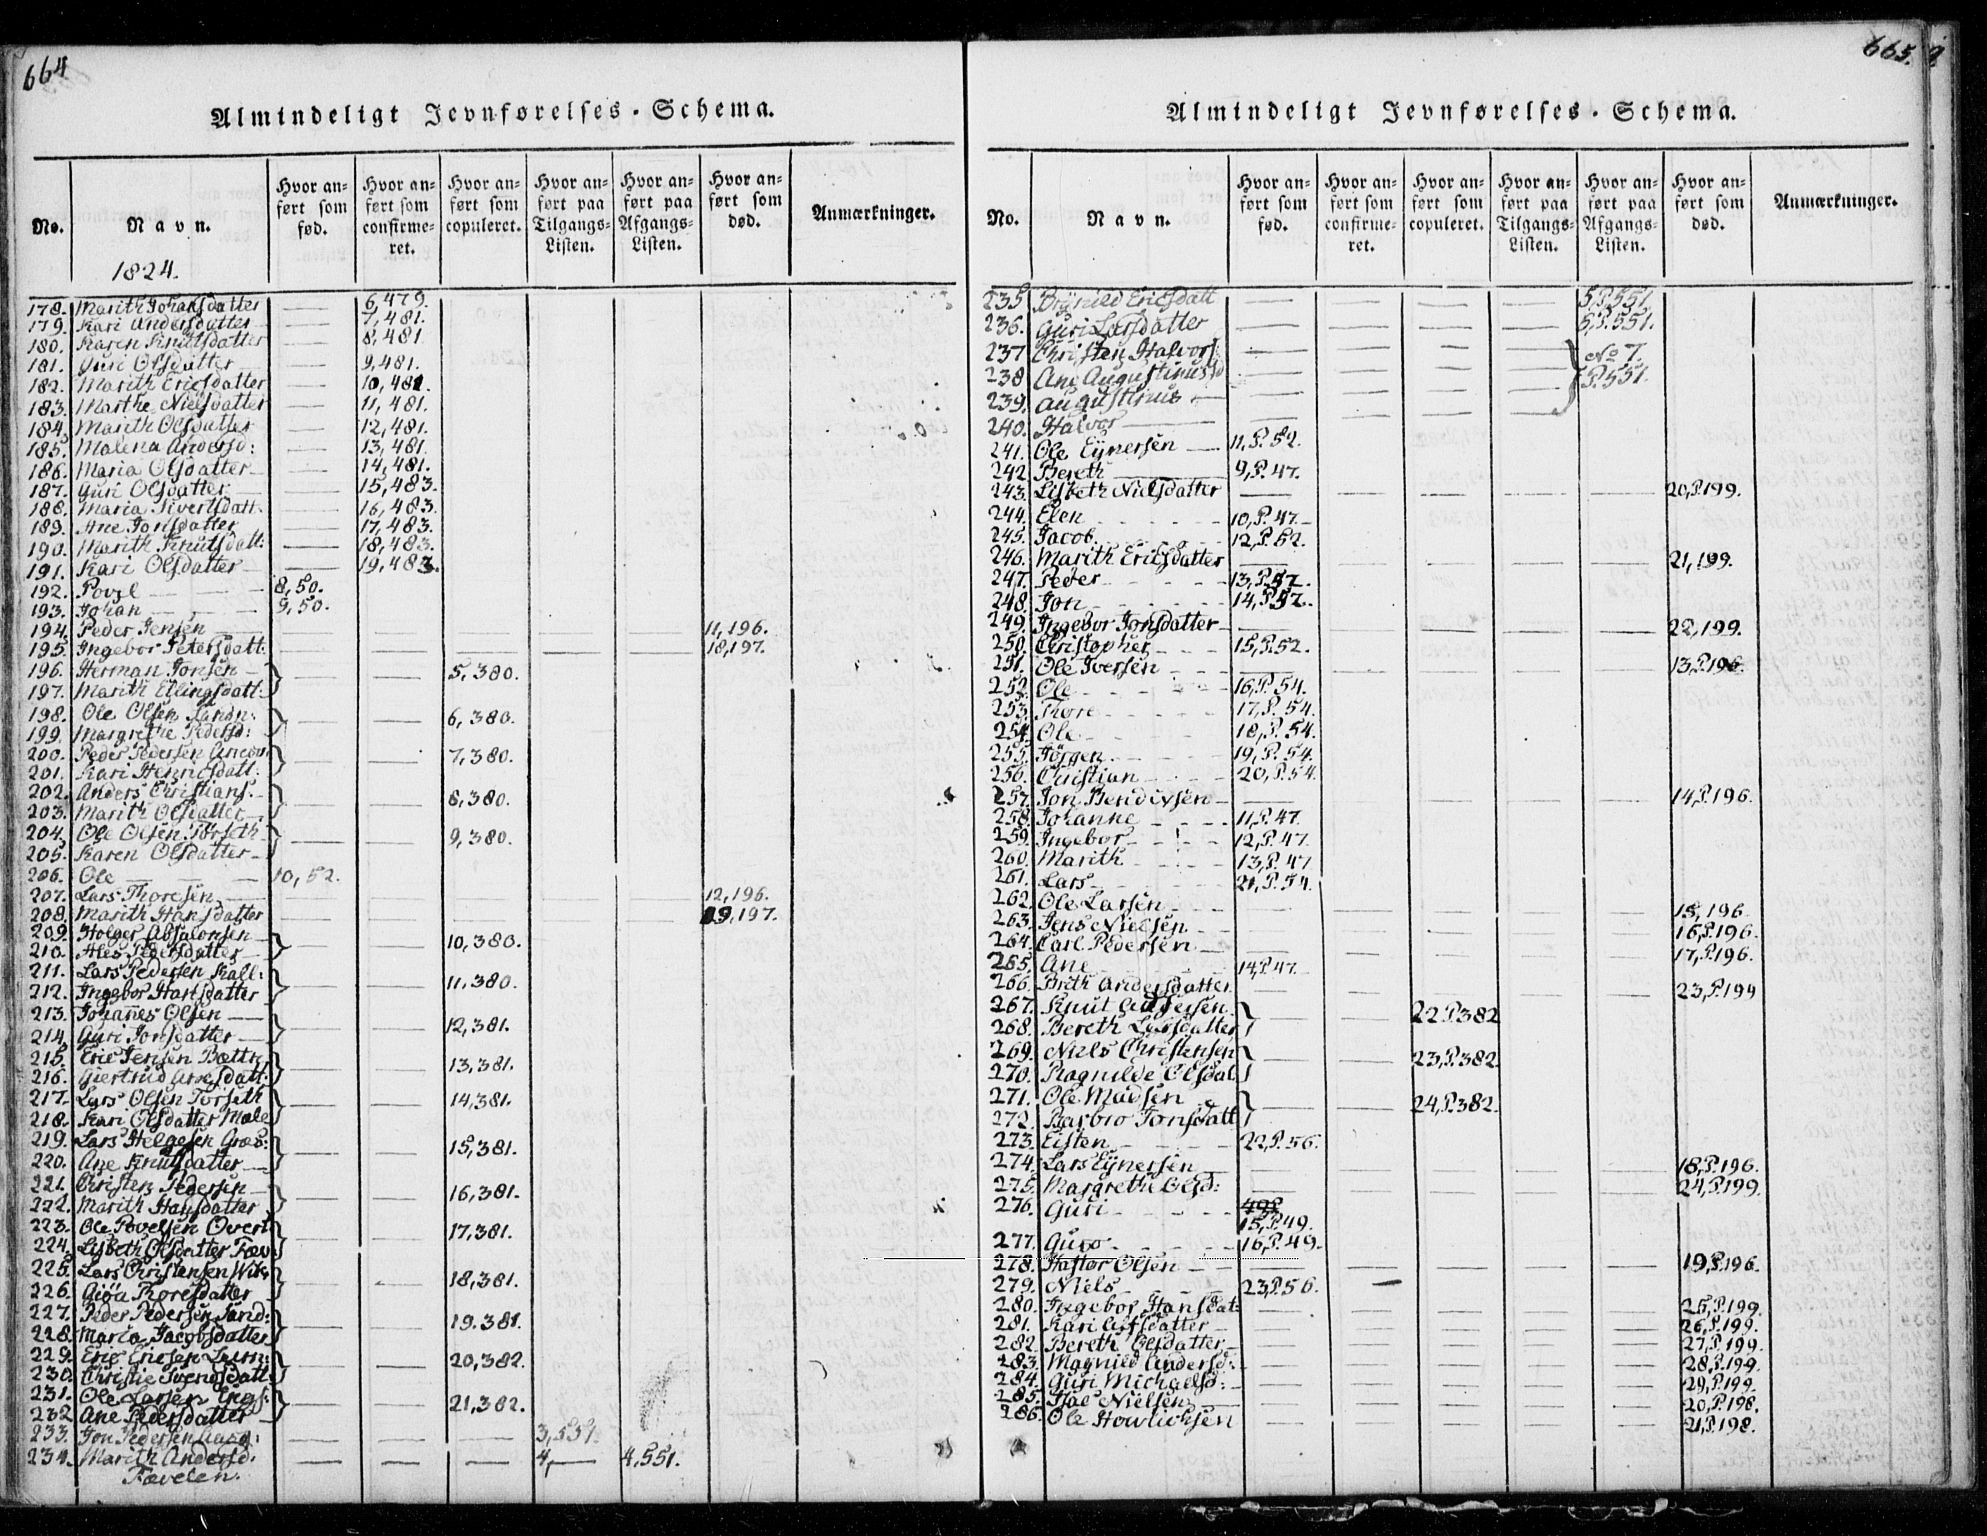 664
Almindeligt Jevnførelses-Schema.
No.
Navn.
Hvor anført som fød.
Hvor anført som confirmeret.
Hvor anført som copuleret.
Hvor anført paa Tilgangs-Listen.
Hvor anført paa Afgangs-Listen.
Hvor anført som død.
Anmærkninger.
1824.
178. Marith Johansdatter 6,479.
179. Kari Andersdatter 7,481.
180. Karen Knutsdatter 8,481
181. Guri Olsdatter 9,481.
182. Marith Ericsdatter 10,481.
183. Marthe Nielsdatter 11,481.
184. Marith Olsdatter 12,481.
185. Malena Andersd: 13,481.
186. Maria Olsdatter 14,481.
187. Guri Olsdatter 15,483.
188. Maria Sivertsdatt. 16,483.
189. Ane Jonsdatter 17,483.
190. Marith Knutsdatt: 18,483.
191. Kari Olsdatter 19,483.
192. Povel 8,50.
193. Johan 9,50.
194. Peder Jensen 11,196.
195. Ingebor Petersdatt: 18,197.
196. Herman Jonsen 5,380.
197. Marith Ellingsdatt:
198. Ole Olsen Sandn: 6,380.
199. Margrethe Pedersd:
200. Peder Pedersen 7,380.
201. Kari Henricsdatt:
202. Anders Christians: 8,380.
203. Marith Olsdatter
204. Ole Olsen Torseth 9,380.
205. Karen Olsdatter
206. Ole 10,52.
207. Lars Thoresen 12,196.
208. Marith Hansdatter 19,197.
209. Holger Absalonsen 10,380.
210. Ales Pedersdatter
211. Lars Pedersen Kall: 11,380.
212. Ingebor Hartsdatter
213. Johannes Olsen 12,381.
214. Guri Jonsdatter
215. Eric Jensen Bættn: 13,381.
216. Giertrud Arnesdatt:
217. Lars Olsen Torseth 14,381.
218. Kari Olsdatter Mæle
219. Lars Helgesen Græs: 15,381.
220. Ane Knutsdatter
221. Christen Pedersen 16,381.
222. Marith Hansdatter
223. Ole Povelsen Overt 17,381.
224. Lisbeth Olsdatter Fæv:
225. Lars Christensen Wik: 18,381.
226. Giøa Thoresdatter
227. Peder Pedersen Sand: 19.381.
228. Maria Jacobsdatter
229. Eric Ericsen Lum: 20,382.
230. Christie Svendsdatt:
231. Ole Larsen Engs: 21,382.
232. Ane Pedersdatter
233. Jon Pedersen 3,537.
234. Marith Andersd. 4, 4,551.
Fævelen.
665.
Almindeligt Jevnførelses-Schema.
No.
Navn.
Hvor anført som fød.
Hvor anført som confirmeret.
Hvor anført som copuleret.
Hvor anført paa Tilgangs-Listen.
Hvor anført paa Afgangs-Listen.
Hvor anført som død.
Anmærkninger.
235. Brynild Ericsdatt 5,P.551.
236. Guri Larsdatter 6,P.551.
237. Christen Halvors: No 7.
238. Ane Augustinusd P.551.
239. Augustinus
240. Halvor
241. Ole Eynersen 11,P.52.
242. Bereth 9,P.47.
243. Lisbeth Nielsdatter 20,P.199.
244. Elen 10,P.47.
245. Jacob 12,P.52.
246. Marith Ericsdatter 21,199.
247. Peder 13,P.52.
248. Jon 14,P.52.
249. Ingebor Jonsdatter 22,199.
250. Christopher 15,P.52.
251. Ole Iversen 13,P.196.
252. Ole 16,P.54.
253. Thore 17,P.54.
254. Ole 18,P.54.
255. Jörgen 19,P.54.
256. Christian 20,P.54.
257. Jon Bendixsen 14,P.196.
258. Johanne 11,P.47.
259. Ingebor 12,P.47.
260. Marith 13,P.47
261. Lars 21,P.54.
262. Ole Larsen 15,196
263. Jens Nielsen 16,P.196.
264. Carl Pedersen 17,P.196.
265. Ane 14,P.47.
266. Brith Andersdatter 23,P.194
267. Knut Andersen 22P.382
268. Bereth Larsdatter
269. Niels Christensen 23,P.382.
270. Ragnilde Olsdat.
271. Ole Madsen 24,P.382.
272. Barbro Tonsdatt
273. Eisten 22,P.56.
274. Lars Eynersen 18,P.196.
275. Margreth Olsd: 24,P.199.
276. Guri 15,P.49.
277. Guro 16,P.49.
278. Haftor Olsen 19,P.196.
279. Niels 23,P.56.
280. Ingebor Hansdat: 25,P.199.
281. Kari Olsdatter 26,P.199.
282. Bereth Olsdatter 27,P.199.
283. Magnild Andersd: 28,P.199.
284. Guri Michaelsd: 29,P.199.
285. Nielsen 20,P.198.
286. Ole 21,P.198.